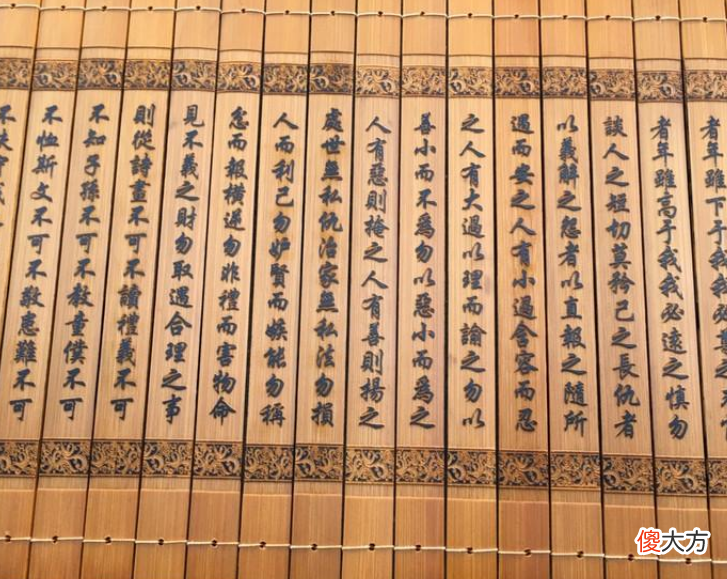 者年雖下于我我必尊之
者年雖高于我我必遠之慎勿
談人之短切莫矜己之長仇者
以義解之怨者以直報之隨所
遇而安之人有小過含容而忍
之人有大過以理而諭之勿以
善小而不為勿以惡小而為之
人有惡則掩之人有善則揚之
處世無私仇治家無私法勿損
人而利己勿妒賢而嫉能勿稱
忿而報橫逆勿非禮而害物命
見不義之財勿取遇合理之事
則從詩書不可不讀禮義不可
不知子孫不可不教童僕不可
不恤斯文不可不敬患難不可
不扶守我
傻大方